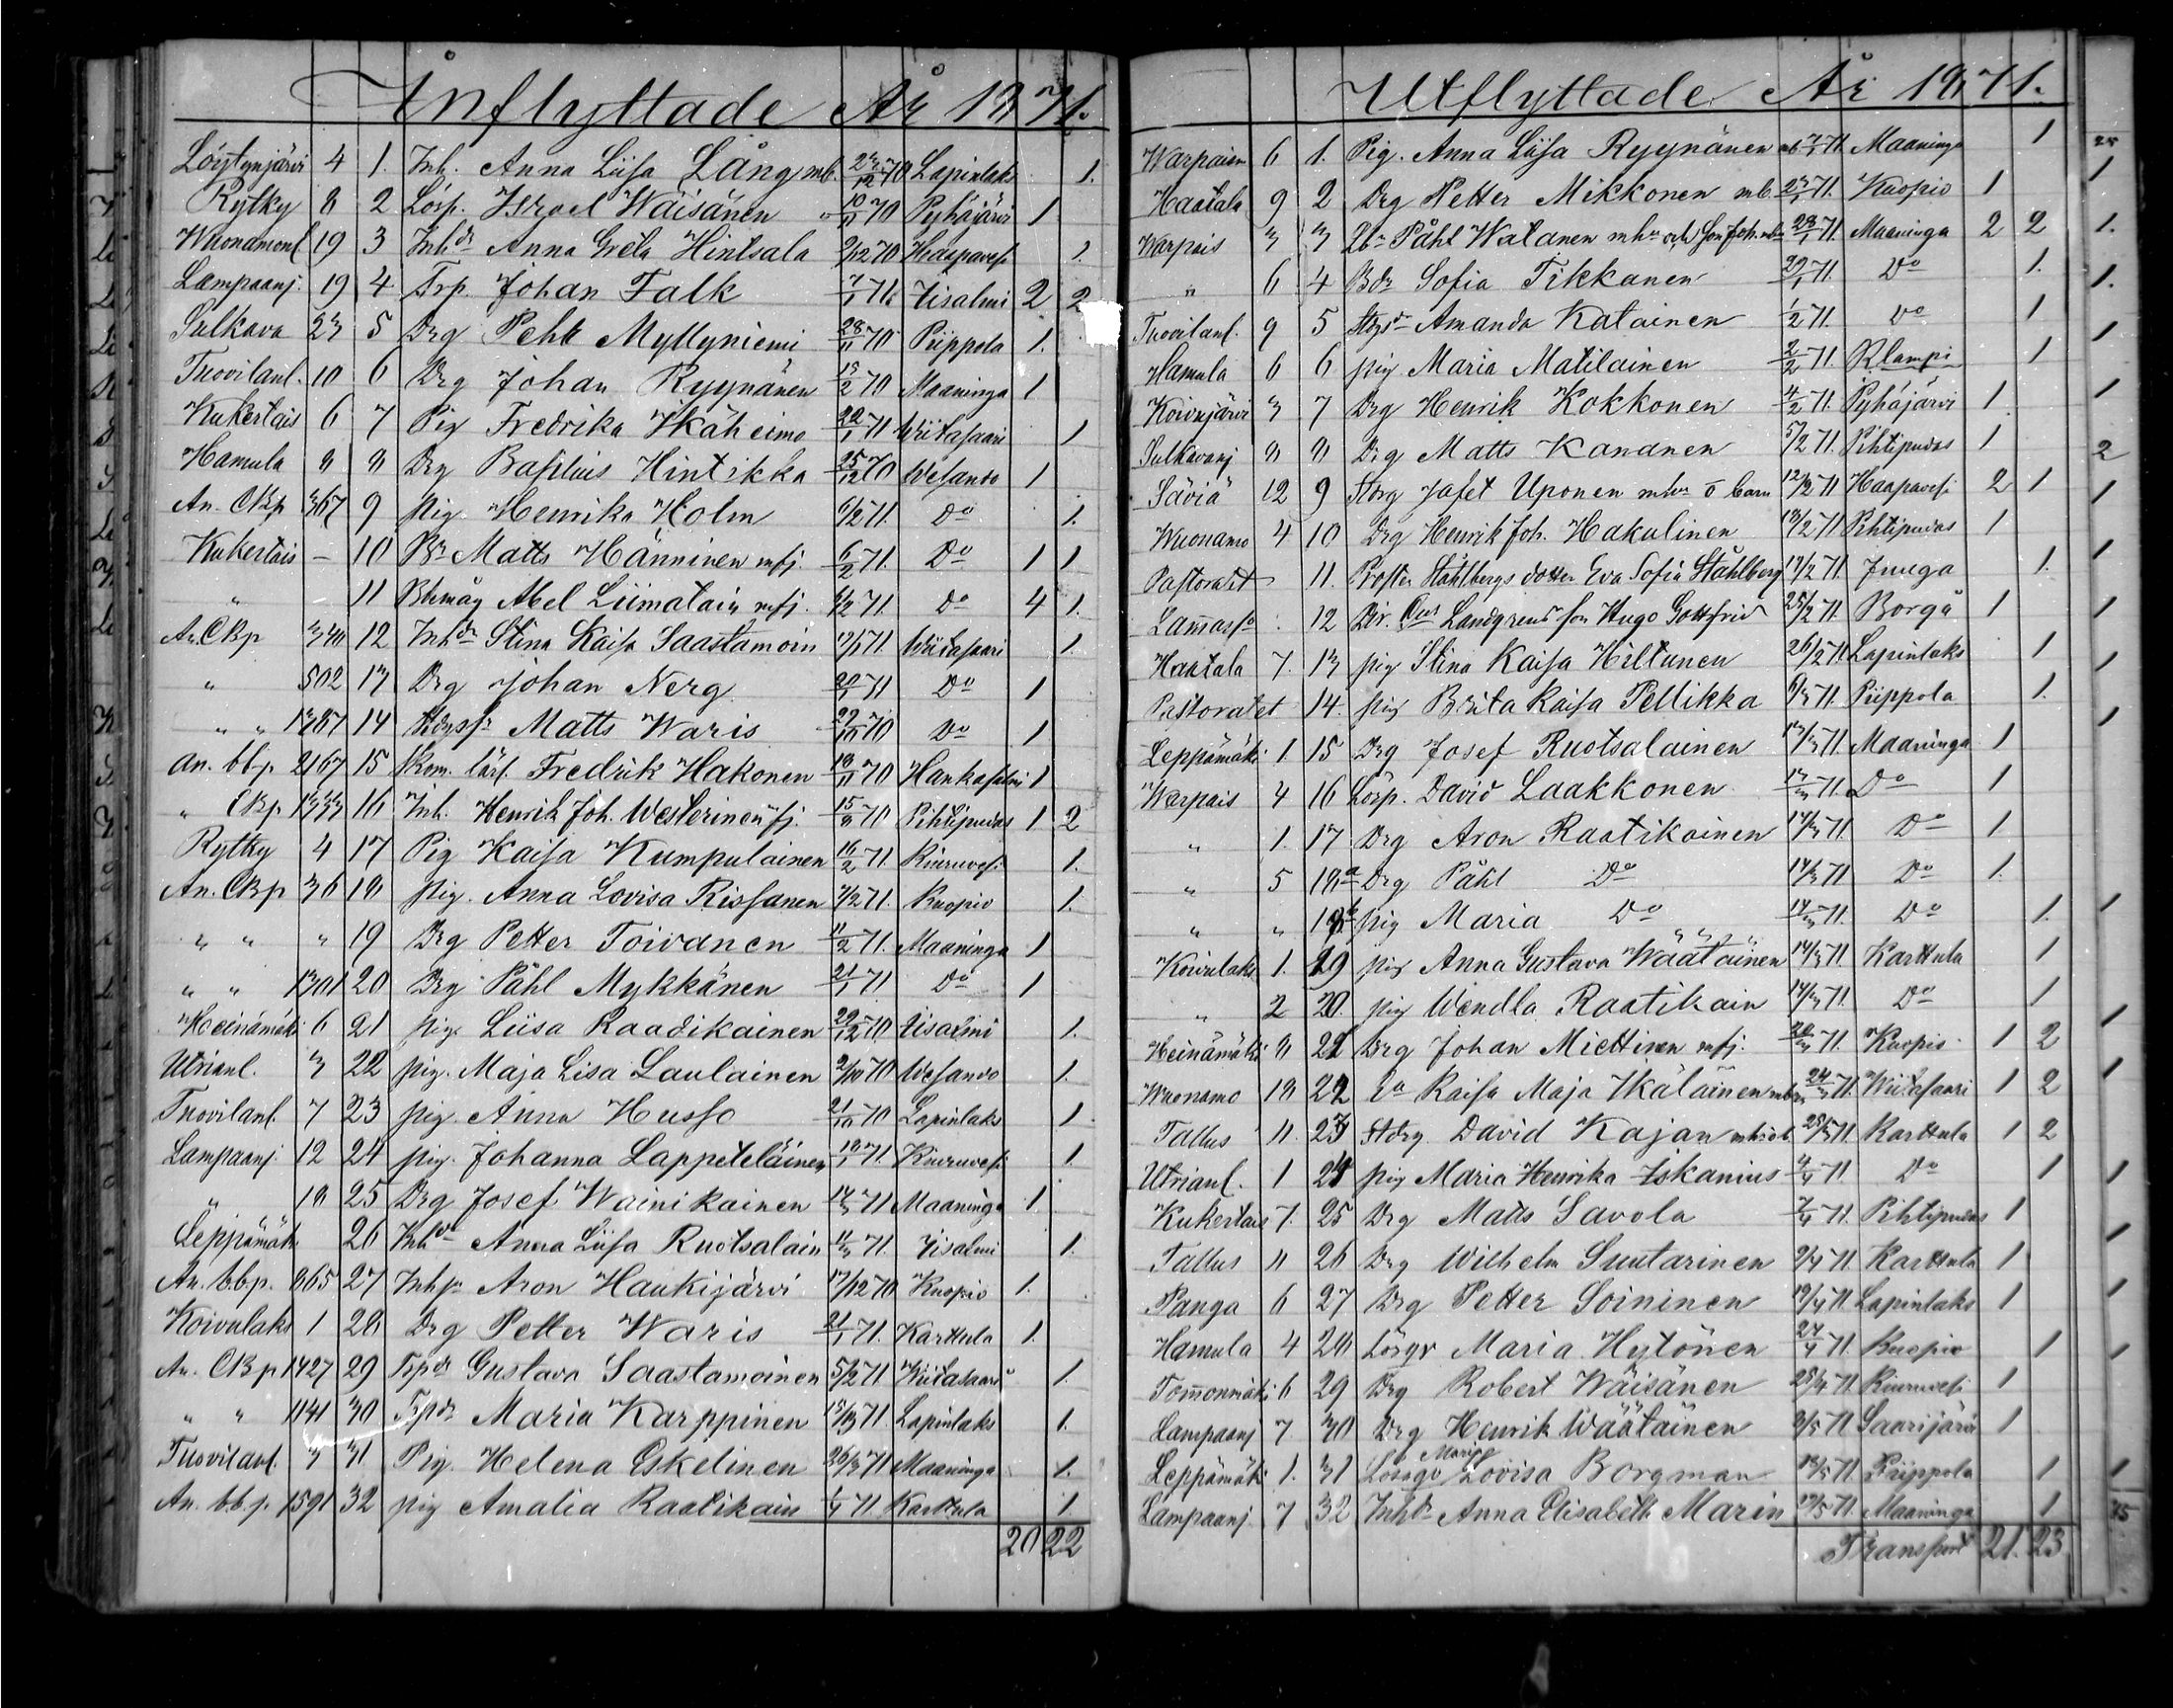 Inflyttade År 1871.
Löytynjärvi 4 1. Inh. Anna Liisa Lång mb. 23/12 70 Lapinlaks 1.
Rytky 8 2 Lösp. Israel Wäisänen " 10/11 70 Pyhäjärvi 1
Wuonamonl 19 3 Inhdr Anna Greta Hintsala 9/12 70 Haapavesi 1.
Lampaanj. 19 4 Trp. Johan Falk 7/1 71 Iisalmi 2 2
Sulkava 23 5 Drg Pehr Myllyniemi 28/11 70 Piippola 1.
Tuovilanl. 10 6 Drg Johan Ryynänen 70 Maaninga 1
Kukertais 6 7 Pig Fredrika Ikäheimo 22/1 71 Wiitasaari 1
Hamula 8 8 Drg Basilius Hintikka 25/12 70 Wesando 1
An. CBp 367 9 pig. Henrika Holm 6/2 71. Do 1.
Kukertais – 10 Br Matts Hänninen mfj. 6/2 71. Do 1 1
" 11 Abel Liimatain mfj. 71 Do 4 1.
An CBp 340 12 Inhdr Stina Kaisa Saastamoin 71. Wiitasaari 1.
" 502 13 Drg Johan Nerg 20/1 71 Do 1
" " 1387 14 Matts Waris 29/10 70 Do 1
An. bbp 2167 15 Skom. lärl. Fredrik Hakonen 18/11 70 Hankasalmi 1
" CBp 1333 16 Inh. Henrik Joh. Westerinen mfj. 70 Pihtipudas 1 2
Rytky 4 17 Pig Kaisa Kumpulainen 16/2 71. Kiuruvesi 1.
An. CBp 36 18 pig. Anna Lovisa Rissanen 7/2 71. Kuopio 1.
" " " 19 Drg Petter Toivanen 11/2 71. Maaninga 1
" " 1301 20 Drg Påhl Mykkänen 21/1 71 Do 1
Heinämäki 6 21 pig. Liisa Raadikainen 29/12 70 Iisalmi 1.
Utrianl. 3 22 pig. Maja Lisa Laulainen 2/10 70 Wesando 1.
Tuovilanl. 7 23 pig. Anna Husso 21/10 70 Lapinlaks 1
Lampaanj. 12 24 pig. Johanna Lappeteläinen 19/1 71. Kiuruvesi 1
" 18 25 Drg Josef Wainikainen 14/3 71 Maaninga 1.
Leppämäki 26 Inhdr Anna Liisa Ruotsalain 11/3 71. Iisalmi 1.
An. bb.p. 865 27 Inh Aron Haukijärvi 17/12 70 Kuopio 1.
Koivulaks 1 28 Drg Petter Waris 21/1 71. Karttula 1.
An. CBp 1427 29 Trpdr Gustava Saastamoinen 5/2 71 Wiitasaari 1.
" " 1141 30 Trpdr Maria Karppinen 15/3 71. Lapinlaks 1.
Tuovilanl. 3 31 Pig. Helena Eskelinen 26/3 71 Maaninga 1.
An. bb.p. 1591 32 pig Amalia Raatikain 1/4 71. Karttula 1.
20 22
Utflyttade År 1871.
Warpaisn 6 1. Pig. Anna Liisa Ryynänen 71. Maaninga 1
Haatala 9 2 Drg Petter Mikkonen mb. 23/1 71. Kuopio 1
Warpais 3 3 Påhl Watanen mhu och son Joh. 28/1 71. Maaninga 2 2
" 6 4 Bdr Sofia Tikkanen 29/1 71. Do 1.
Tuovilanl. 9 5 Amanda Katainen 1/2 71. Do 1
Hamula 6 6 pig Maria Matilainen 2/2 71. Rlampi 1
Koivujärvi 3 7 Drg Henrik Kokkonen 4/2 71. Pyhäjärvi 1.
Sulkavanj 8 8 Drg Matts Kananen 5/2 71. Pihtipudas 1
Säviä 12 9 Storg Jafet Uponen mhu o barn 12/2 71 Haapavesi 2 1
Wuonamo 4 10 Drg Henrik Joh. Hakulinen 13/2 71 Pihtipudas 1
Pastoratet 11. Prosten Ståhlbergs dotter Eva Sofia Ståhlberg 17/2 71 Juuga 1.
12 Landgrens son Hugo Gottfrid 25/2 71. Borgå 1
Haatala 7. 13 pig Stina Kaisa Hiltunen 26/2 71 Lapinlaks 1
Pastoratet 14. pig Brita Kaisa Pellikka 6/3 71. Piippola 1.
Leppämäki 1. 15 Drg Josef Ruotsalainen 13/3 71. Maaninga 1
Warpais 4 16 Lösp. David Laakkonen 13/3 71. Do 1
" 1. 17 Drg Aron Raatikainen 14/3 71. Do 1
" 5 18a Drg Påhl Do 14/3 71 Do 1.
" " 18b pig Maria Do 14/3 71. Do 1.
Koivulaks 1. 19 pig Anna Gustava Wäätäinen 14/3 71. Karttula 1
" 2 20. pig Wendla Raatikain 14/3 71. Do 1
Heinämäki 8 21 Drg Johan Miettinen mfj. 20/3 71. Kuopio 1 2
Wuonamo 18 22 Ea Kaisa Maja Ikäläinen 24/3 71. Wiitasaari 1 2
Tallus 11. 23 Storg David Kajan 28/3 71. Karttula 1 2
Utrianl. 1 24 pig Maria Henrika Iskanius 4/4 71 Do 1
Kukertais 7. 25 Drg Matts Savola 7/4 71. Pihtipudas 1
Tallus 11 26 Drg Wilhelm Suutarinen 9/4 71. Karttula 1
Panga 6 27 Drg Petter Soininen 19/4 71. Lapinlaks 1
Hamula 4 28 Lösqv Maria Hytönen 27/4 71. Kuopio 1
Tommonmäki 6 29 Drg Robert Wäisänen 28/4 71. Kiuruvesi 1
Lampaanj 7. 30 Drg Henrik Wäätäinen 3/5 71 Saarijärvi 1
Leppämäki 1. 31 Lösqv Maria Lovisa Borgman 13/5 71. Piippola 1
Lampaanj. 7 32 Inhdr Anna Elisabeth Marin 17/5 71. Maaninga 1
Transport 21. 23